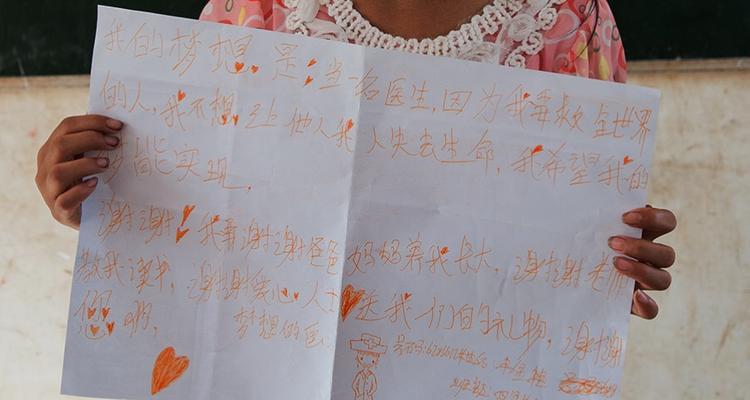 我的梦想是当一名医生,因为我要救全世界
的人,我不想让他人 人失去生命,我希望我的
能实现。
谢谢!我要谢谢爸爸妈妈养我长大,谢谢老师
教我读书,谢谢爱心人士送我们的礼物,谢谢
您啊,
梦想的医